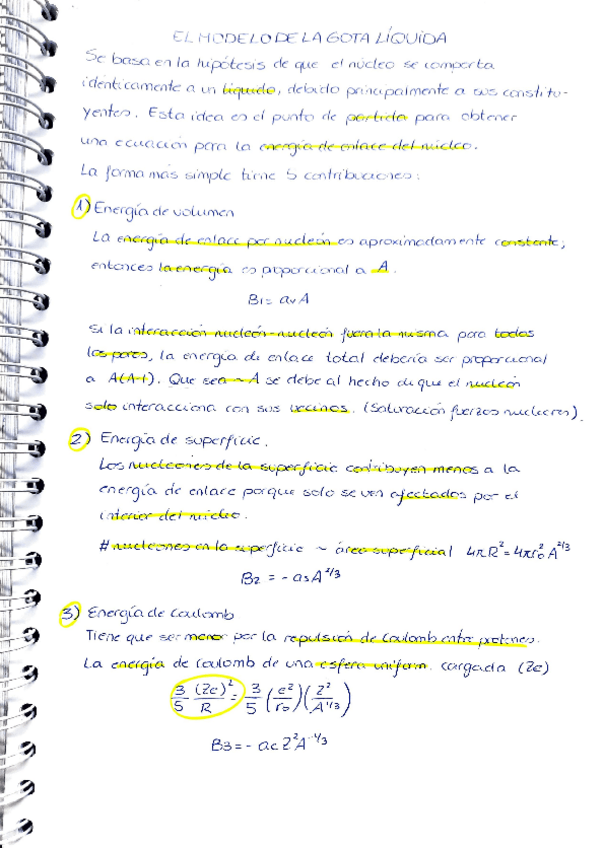 EL MODELO DE LA GOTA LÍQUIDA
Se basa en la hipótesis de que el núcleo se comporta
idénticamente a un líquido, debido principalmente a sus constitu-
yentes. Esta idea es el punto de partida para obtener
una ecuación para la energía de enlace del núcleo.
La forma más simple tiene 5 contribuciones:
1) Energía de volumen
La energía de enlace por nucleón es aproximadamente constante,
entonces la energía es proporcional a A.
B1 = avA
Si la interacción nucleón-nucleón fuera la misma para todos
los pares, la energía de enlace total debería ser proporcional
a A(A-1). Que sea ~ A se debe al hecho de que el nucleón
solo interacciona con sus vecinos. (Saturación fuerzas nucleares).
2) Energía de superficie.
Los nucleones de la superficie contribuyen menos a la
energía de enlace porque solo se ven afectados por el
interior del núcleo.
# nucleones en la superficie ~ área superficial 4πR² = 4πr₀² A^2/3
B2 = - asA^2/3
3) Energía de Coulomb
Tiene que ser menor por la repulsión de Coulomb entre protones.
La energía de coulomb de una esfera uniform. cargada (Ze)
3/5 (Ze)²/R = 3/5 (e²/r₀)(Z²/A^1/3)
B3 = - acZ²A^-1/3